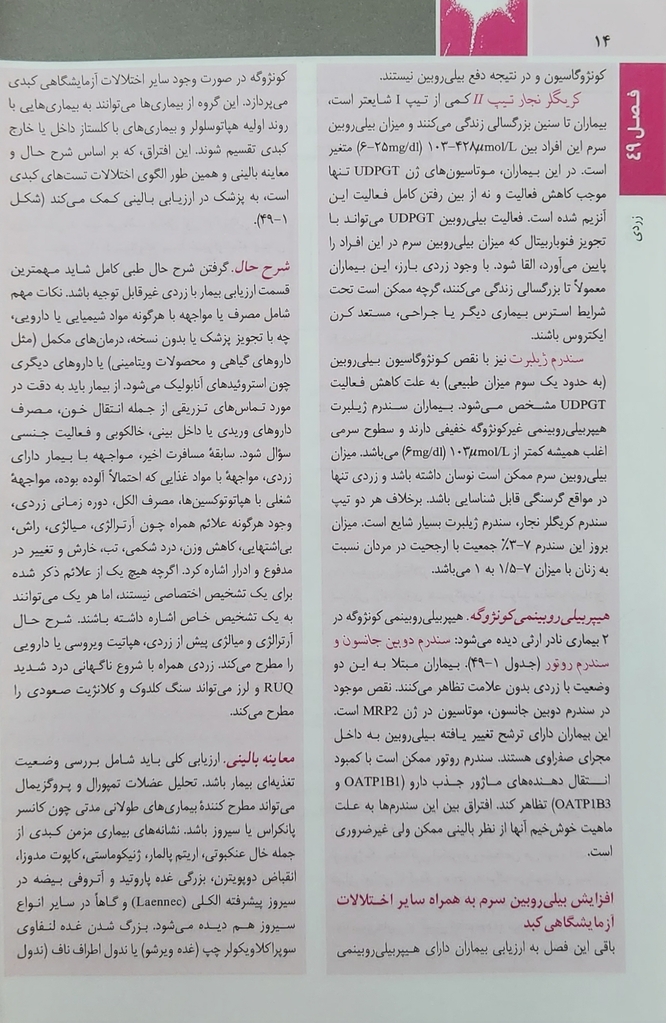 ۱۴
فصل ۴۹
زردی
کونژوگاسیون و در نتیجه دفع بیلی‌روبین نیستند.
کریگلر نجار تیپ II کمی از تیپ I شایعتر است،
بیماران تا سنین بزرگسالی زندگی می‌کنند و میزان بیلی‌روبین
سرم این افراد بین ۱۰۳-۴۲۸µmol/L (۶-۲۵mg/dl) متغیر
است. در این بیماران، موتاسیون‌های ژن UDPGT تنها
موجب کاهش فعالیت و نه از بین رفتن کامل فعالیت این
آنزیم شده است. فعالیت بیلی‌روبین UDPGT می‌تواند با
تجویز فنوباربیتال که میزان بیلی‌روبین سرم در این افراد را
پایین می‌آورد، القا شود. با وجود زردی بارز، این بیماران
معمولاً تا بزرگسالی زندگی می‌کنند، گرچه ممکن است تحت
شرایط استرس بیماری دیگر یا جراحی، مستعد کرن
ایکتروس باشند.
سندرم ژیلبرت نیز با نقص کونژوگاسیون بیلی‌روبین
(به حدود یک سوم میزان طبیعی) به علت کاهش فعالیت
UDPGT مشخص می‌شود. بیماران سندرم ژیلبرت
هیپربیلی‌روبینمی غیرکونژوگه خفیفی دارند و سطوح سرمی
اغلب همیشه کمتر از ۱۰۳µmol/L (۶mg/dl) می‌باشد. میزان
بیلی‌روبین سرم ممکن است نوسان داشته باشد و زردی تنها
در مواقع گرسنگی قابل شناسایی باشد. برخلاف هر دو تیپ
سندرم کریگلر نجار، سندرم ژیلبرت بسیار شایع است. میزان
بروز این سندرم ۷-۳٪ جمعیت با ارجحیت در مردان نسبت
به زنان با میزان ۷-۱/۵ به ۱ می‌باشد.
هیپربیلی‌روبینمی کونژوگه. هیپربیلی‌روبینمی کونژوگه در
۲ بیماری نادر ارثی دیده می‌شود: سندرم دوبین جانسون و
سندرم روتور (جدول ۱-۴۹). بیماران مبتلا به این دو
وضعیت با زردی بدون علامت تظاهر می‌کنند. نقص موجود
در سندرم دوبین جانسون، موتاسیون در ژن MRP2 است.
این بیماران دارای ترشح تغییر یافته بیلی‌روبین به داخل
مجرای صفراوی هستند. سندرم روتور ممکن است با کمبود
انتقال دهنده‌های ماژور جذب دارو (OATP1B1 و
OATP1B3) تظاهر کند. افتراق بین این سندرم‌ها به علت
ماهیت خوش‌خیم آنها از نظر بالینی ممکن ولی غیرضروری
است.
افزایش بیلی‌روبین سرم به همراه سایر اختلالات
آزمایشگاهی کبد
باقی این فصل به ارزیابی بیماران دارای هیپربیلی‌روبینمی
کونژوگه در صورت وجود سایر اختلالات آزمایشگاهی کبدی
می‌پردازد. این گروه از بیماری‌ها می‌توانند به بیماری‌هایی با
روند اولیه هپاتوسلولر و بیماری‌های با کلستاز داخل یا خارج
کبدی تقسیم شوند. این افتراق، که بر اساس شرح حال و
معاینه بالینی و همین طور الگوی اختلالات تست‌های کبدی
است، به پزشک در ارزیابی بالینی کمک می‌کند (شکل
۱-۴۹).
شرح حال. گرفتن شرح حال طبی کامل شاید مهمترین
قسمت ارزیابی بیمار با زردی غیرقابل توجیه باشد. نکات مهم
شامل مصرف یا مواجهه با هرگونه مواد شیمیایی یا دارویی،
چه با تجویز پزشک یا بدون نسخه، درمان‌های مکمل (مثل
داروهای گیاهی و محصولات ویتامینی) یا داروهای دیگری
چون استروئیدهای آنابولیک می‌شود. از بیمار باید به دقت در
مورد تماس‌های تزریقی از جمله انتقال خون، مصرف
داروهای وریدی یا داخل بینی، خالکوبی و فعالیت جنسی
سؤال شود. سابقهٔ مسافرت اخیر، مواجهه با بیمار دارای
زردی، مواجههٔ با مواد غذایی که احتمالاً آلوده بوده، مواجههٔ
شغلی با هپاتوتوکسین‌ها، مصرف الکل، دوره زمانی زردی،
وجود هرگونه علائم همراه چون آرترالژی، میالژی، راش،
بی‌اشتهایی، کاهش وزن، درد شکمی، تب، خارش و تغییر در
مدفوع و ادرار اشاره کرد. اگرچه هیچ یک از علائم ذکر شده
برای یک تشخیص اختصاصی نیستند، اما هر یک می‌توانند
به یک تشخیص خاص اشاره داشته باشند. شرح حال
آرترالژی و میالژی پیش از زردی، هپاتیت ویروسی یا دارویی
را مطرح می‌کند. زردی همراه با شروع ناگهانی درد شدید
RUQ و لرز می‌تواند سنگ کلدوک و کلانژیت صعودی را
مطرح می‌کند.
معاینه بالینی. ارزیابی کلی باید شامل بررسی وضعیت
تغذیه‌ای بیمار باشد. تحلیل عضلات تمپورال و پروگزیمال
می‌تواند مطرح کنندهٔ بیماری‌های طولانی مدتی چون کانسر
پانکراس یا سیروز باشد. نشانه‌های بیماری مزمن کبدی از
جمله خال عنکبوتی، اریتم پالمار، ژنیکوماستی، کاپوت مدوزا،
انقباض دوپویترن، بزرگی غده پاروتید و آتروفی بیضه در
سیروز پیشرفته الکلی (Laennec) و گاهاً در سایر انواع
سیروز هم دیده می‌شود. بزرگ شدن غده لنفاوی
سوپراکلاویکولر چپ (غده ویرشو) یا ندول اطراف ناف (ندول